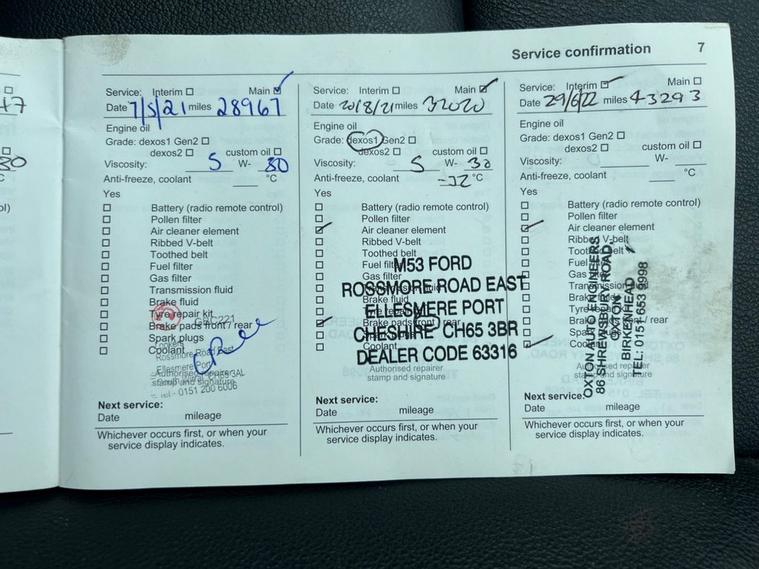 Service confirmation 7
47
30
Service: Interim ☐ Main ☑
Date 7/5/21 miles 28967
Engine oil
Grade: dexos1 Gen2 ☐
dexos2 ☐ custom oil ☐
Viscosity: 5 W- 30
Anti-freeze, coolant °C
Yes
☐ Battery (radio remote control)
☐ Pollen filter
☐ Air cleaner element
☐ Ribbed V-belt
☐ Toothed belt
☐ Fuel filter
☐ Gas filter
☐ Transmission fluid
☐ Brake fluid
☐ Tyre repair kit
☐ Brake pads front / rear
☐ Spark plugs
☐ Coolant
Rossmore Road East
Ellesmere Port
Authorised repairer
stamp and signature
0151 200 6006
Next service:
Date mileage
Whichever occurs first, or when your
service display indicates.
Service: Interim ☐ Main ☑
Date 20/8/21 miles 32020
Engine oil
Grade: dexos1 Gen2 ☐
dexos2 ☐ custom oil ☐
Viscosity: 5 W- 30
Anti-freeze, coolant -32 °C
Yes
☐ Battery (radio remote control)
☐ Pollen filter
☑ Air cleaner element
☐ Ribbed V-belt
☐ Toothed belt
☐ Fuel filter
☐ Brake fluid
☑ Brake pads front / rear
☐ Coolant
M53 FORD
ROSSMORE ROAD EAST
ELLESMERE PORT
CHESHIRE CH65 3BR
DEALER CODE 63316
Authorised repairer
stamp and signature
Next service:
Date mileage
Whichever occurs first, or when your
service display indicates.
Service: Interim ☑ Main ☐
Date 29/6/22 miles 43293
Engine oil
Grade: dexos1 Gen2 ☐
dexos2 ☐ custom oil ☐
Viscosity: W-
Anti-freeze, coolant °C
Yes
☐ Battery (radio remote control)
☐ Pollen filter
☑ Air cleaner element
☐ Ribbed V-belt
OXTON AUTO ENGINEERS
86 SHREWSBURY ROAD,
OXTON
BIRKENHEAD
TEL: 0151 653 9998
Authorised repairer
stamp and signature
Next service:
Date mileage
Whichever occurs first, or when your
service display indicates.